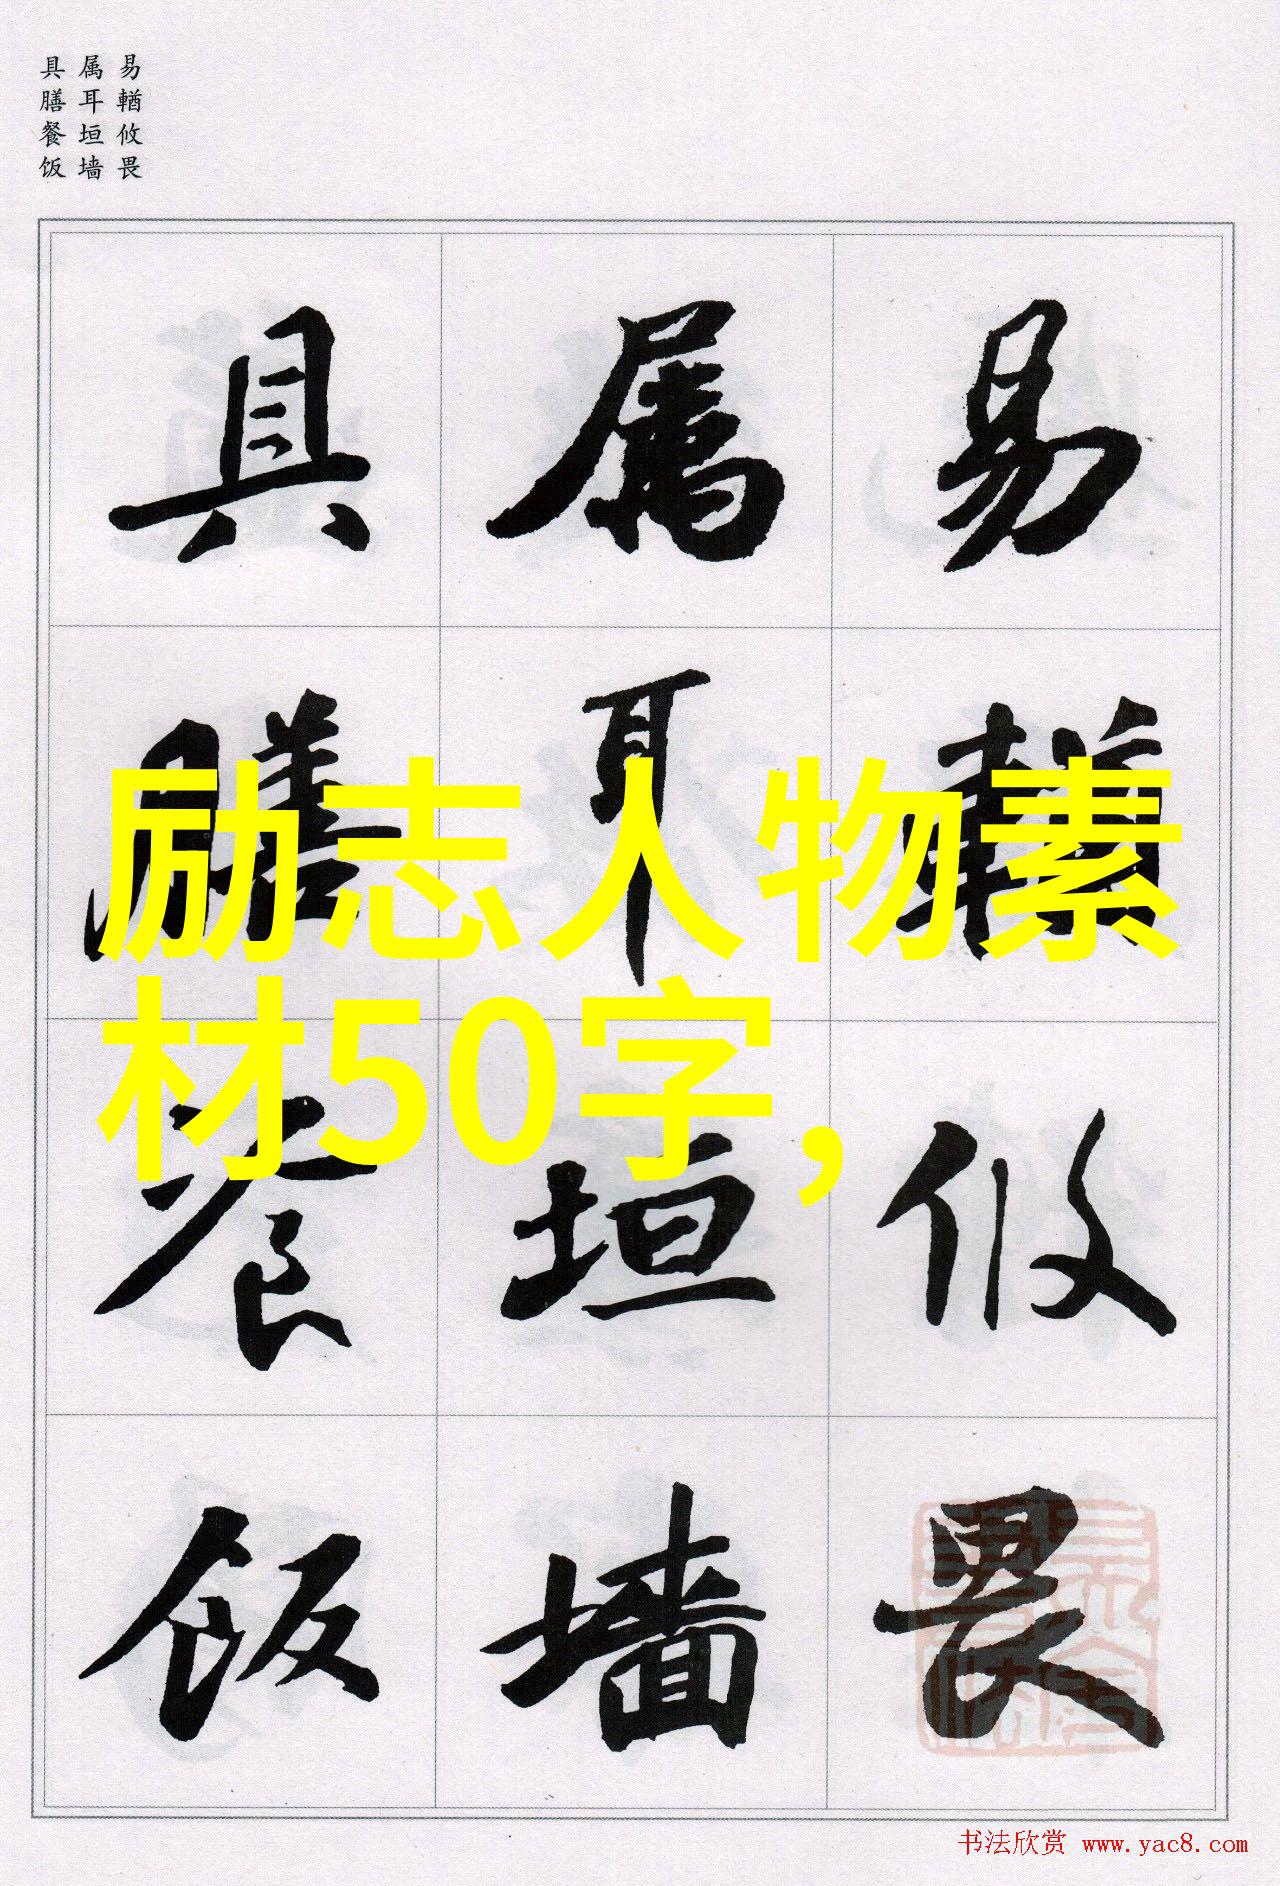 易輶攸畏
属耳垣墙
具膳餐饭
易輶攸畏
属耳垣墙
具膳餐饭
励志人物素
材50字，
书法欣赏 www.yac8.com